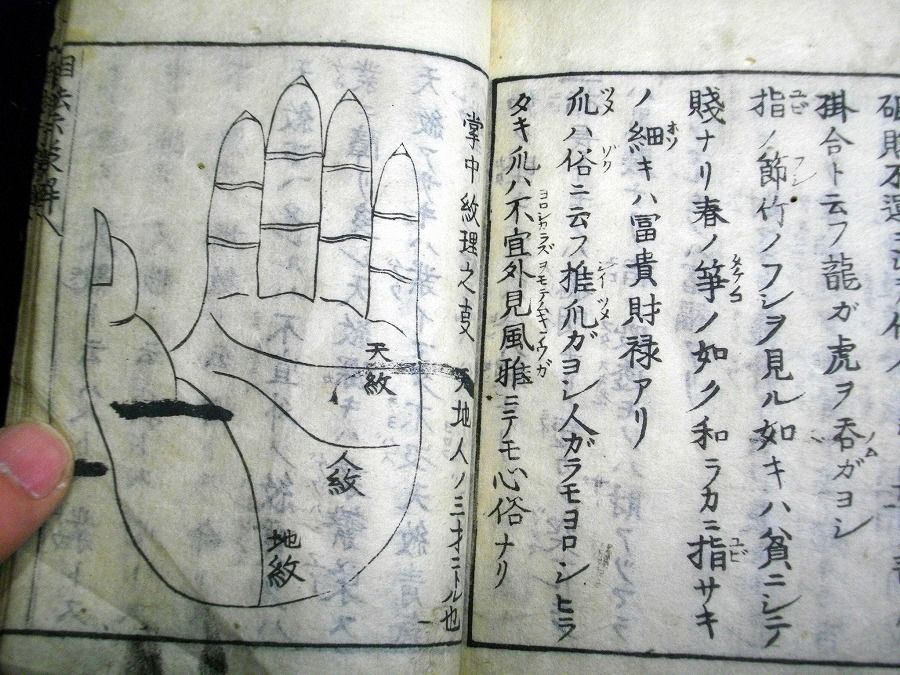 掛合ト云フ龍ガ虎ヲ呑ガヨシ
指ノ節竹ノフシヲ見ル如キハ貧ニシテ
賤ナリ春ノ筆ノ如ク和ラカニ指サキ
ノ細キハ冨貴財禄アリ
爪ハ俗ニ云フ推爪ガヨシ人ガラモヨロシヒラ
タキ爪ハ不宜外見風雅ニテモ心俗ナリ
掌中紋理之叓
天地人ノ三才ニトル也
天紋
人紋
地紋